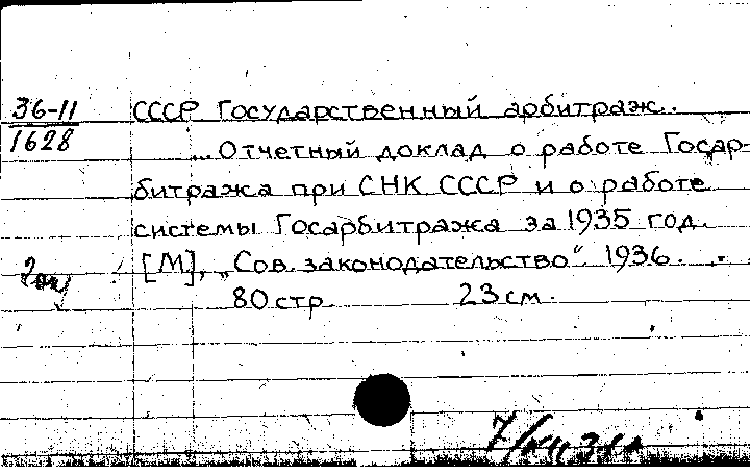 36-11
1628
СССР Государственный арбитраж..
... Отчетный доклад о работе Госар-
битража при СНК СССР и о работе
системы Госарбитража за 1935 год.
[М], „Сов. законодательство“. 1936.
80 стр. 23 см.